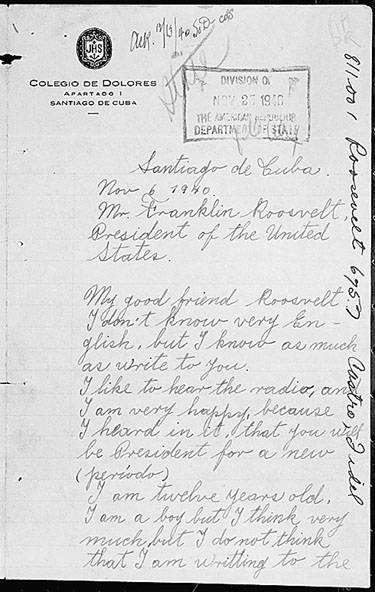 JHS
COLEGIO DE DOLORES
APARTADO 1
SANTIAGO DE CUBA
DIVISION OF
NOV 27 1940
THE AMERICAN REPUBLICS
DEPARTMENT OF STATE
Santiago de Cuba.
Nov 6 1940.
Mr. Franklin Roosvelt,
President of the United
States.
My good friend Roosvelt
I don't know very En-
glish, but I know as much
as write to you.
I like to hear the radio, and
I am very happy, because
I heard in it, that you will
be President for a new
(período)
I am twelve years old.
I am a boy but I think very
much but I do not think
that I am writting to the
811.001 Roosevelt
Castro, Fidel